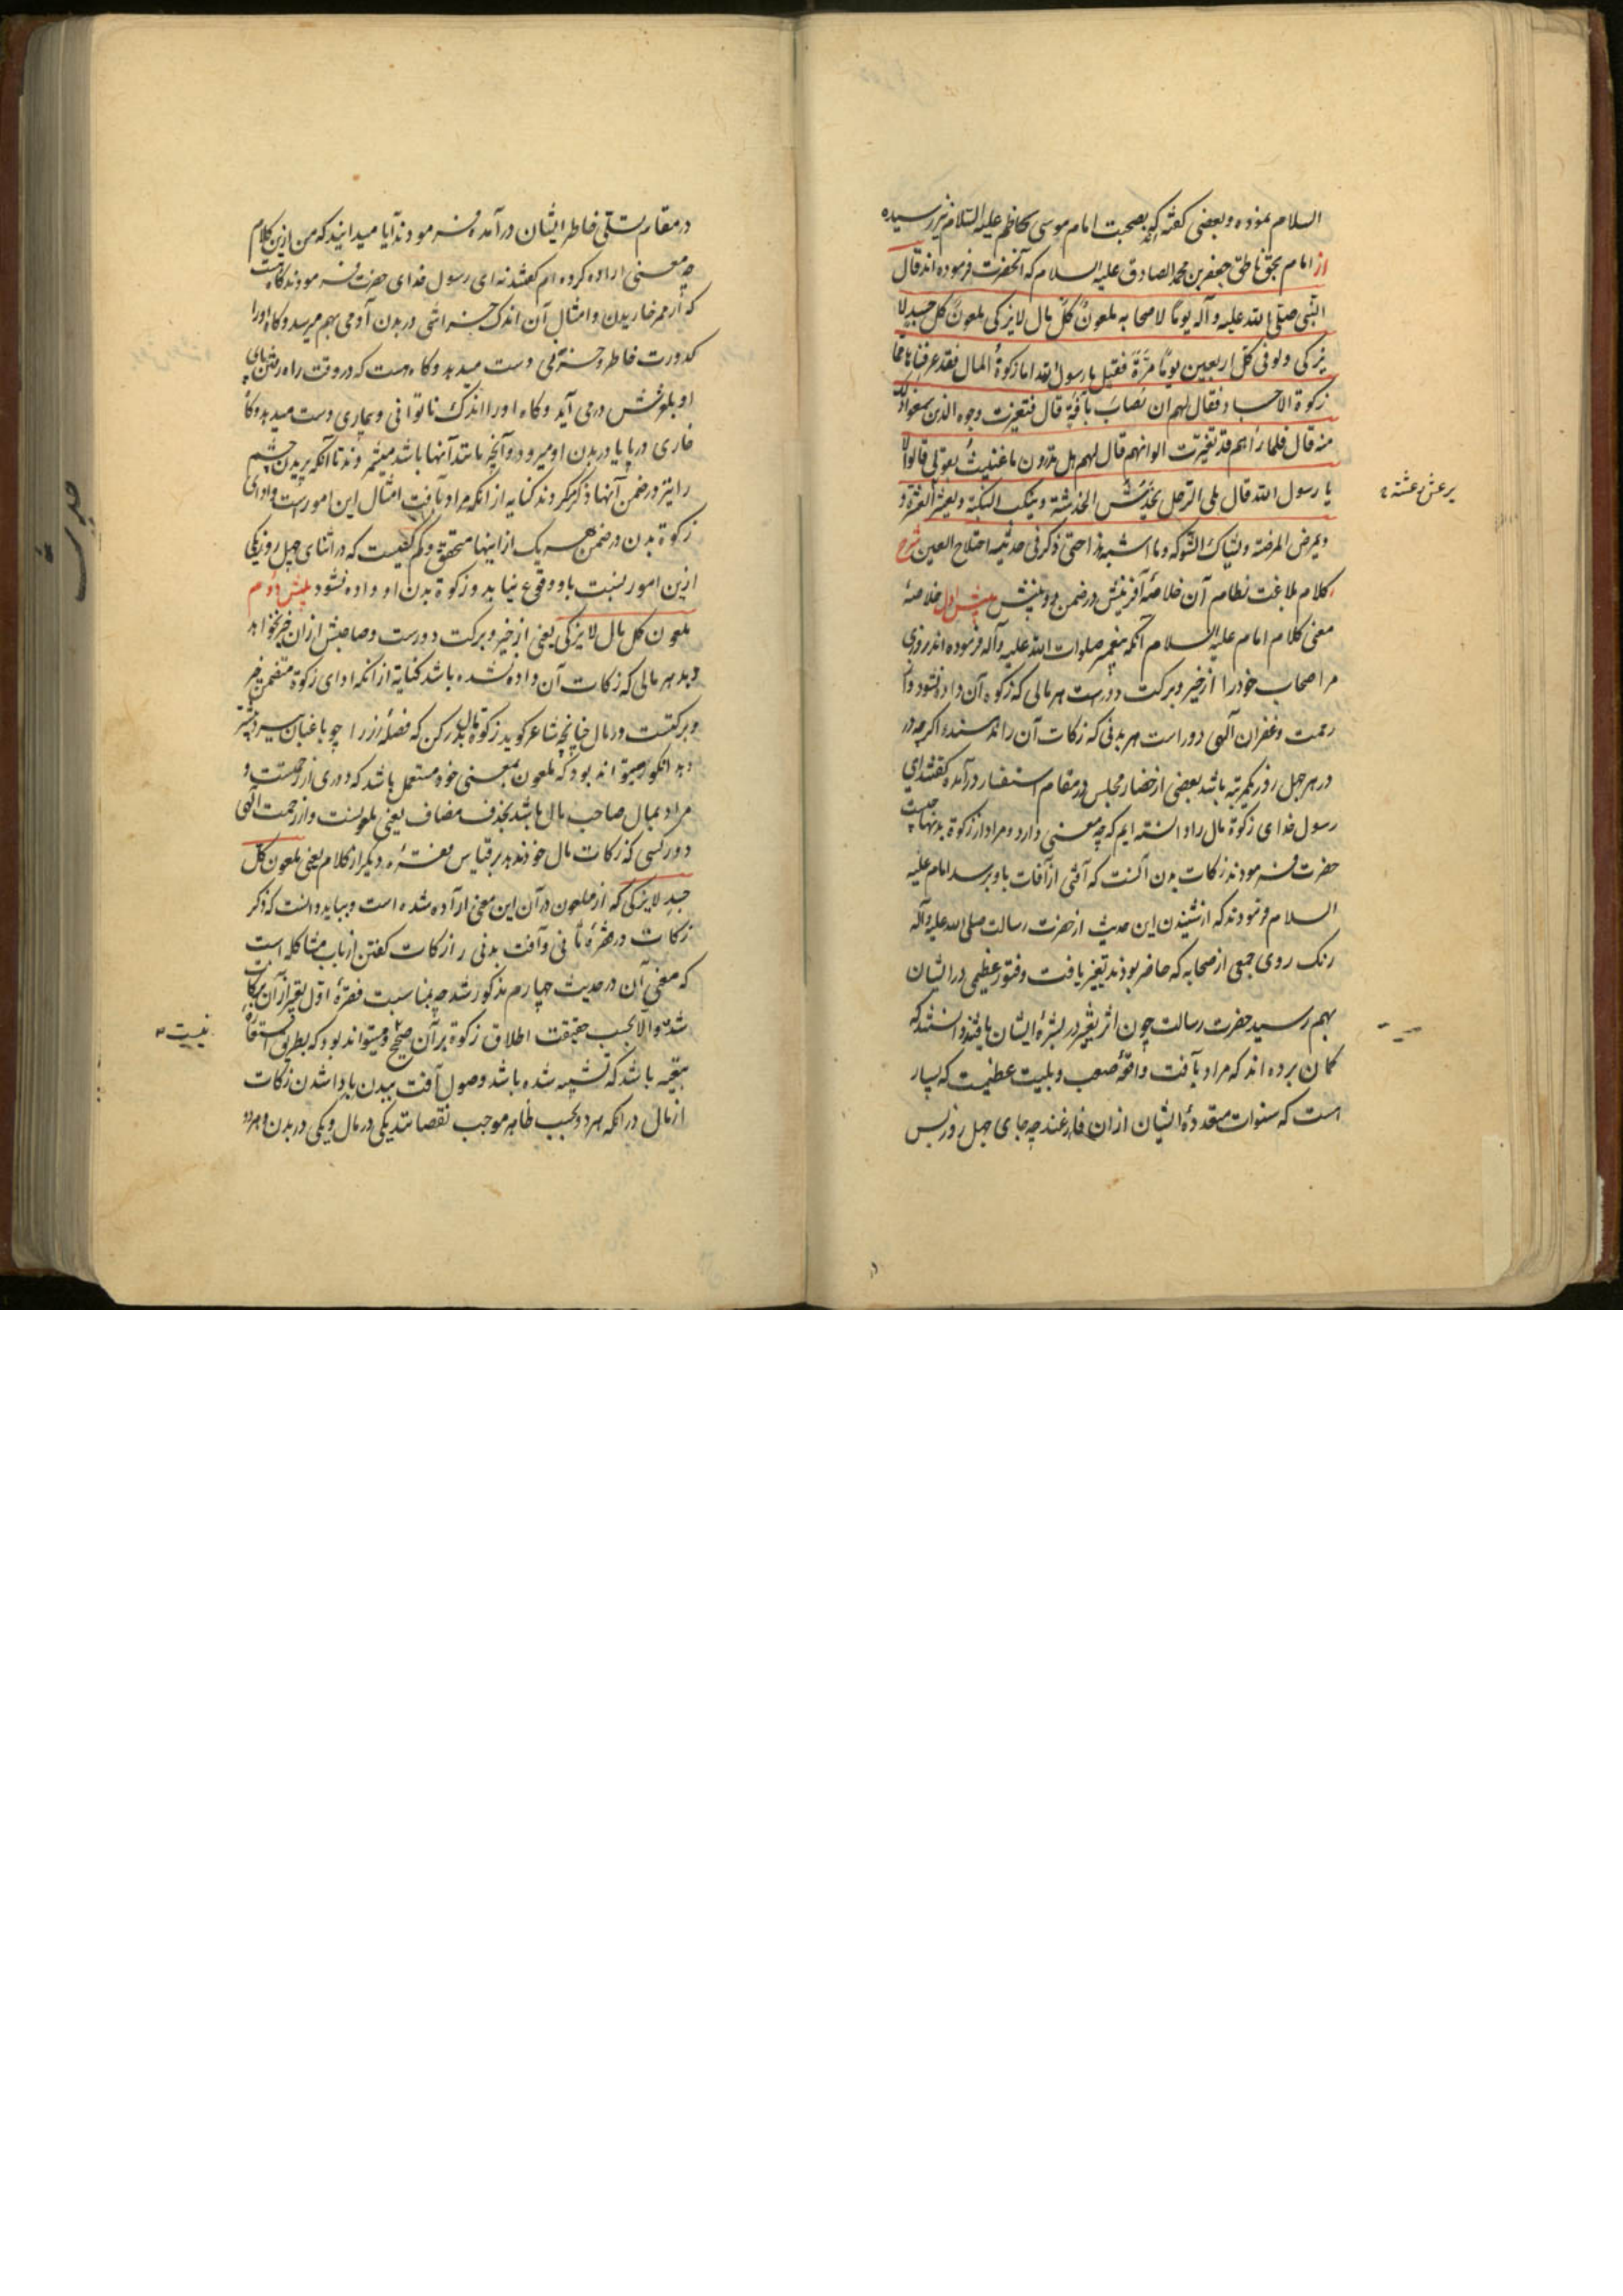 السلام نموده و بعضی گفته‌اند که بصحبت امام موسی کاظم علیه السلام نیز رسیده
از امام بحق ناطق جعفر بن محمد الصادق علیه السلام که آنحضرت فرموده اند قال
النبی صلی الله علیه و آله یوما لاصحابه ملعون کل مال لا یزکی ملعون کل جسد لا
یزکی و لو فی کل اربعین یوما مرة فقیل یا رسول الله اما زکوة المال فقد عرفناها فما
زکوة الاجساد فقال لهم ان تصاب بآفة قال فتغیرت وجوه الذین سمعوا ذلک
منه قال فلما رآهم قد تغیرت الوانهم قال لهم هل تدرون ما عنیت بقولی قالوا لا
یا رسول الله قال بلی الرجل یخدش الخدشة و ینکب النکبة و یعثر العثرة و
و یمرض المرضة و یشاک الشوکه و ما اشبه هذا حتی ذکر فی حدیثه اختلاج العین شرح
کلام بلاغت نظام آن خلاصهٔ آفرینش در ضمن دو بینش بینش اول خلاصهٔ
معنی کلام امام علیه السلام آنکه پیغمبر صلوات الله علیه و آله فرموده اند روزی
مر اصحاب خود را از خیر و برکت دورست هر مالی که زکوه آن داده نشود و از
رحمت و غفران الهی دور است هر بدنی که زکات آن را ندهند و اگر چه در
در هر چهل روز یکمرتبه باشد بعضی از حضار مجلس در مقام استفسار درآمده گفتند ای
رسول خدای زکوة مال را دانسته ایم که چه معنی دارد و مراد از زکوة بدنها چیست
حضرت فرمودند زکات بدن آنست که آفتی از آفات باو برسد امام علیه
السلام فرمودند که از شنیدن این حدیث از حضرت رسالت صلی الله علیه و آله
رنک روی جمعی از صحابه که حاضر بودند تغیر یافت و فتور عظیمی در ایشان
بهم رسید حضرت رسالت چون اثر تغیر در بشرهٔ ایشان یافتند دانستند که
کمان برده اند که مراد بآفت واقعهٔ صعب و بلیت عظیمست که بسیار
است که سنوات متعددهٔ ایشان از ان فارغند چه جای چهل روز پس
یرعش رعشة
در مقام تسلی خاطر ایشان درآمده فرمودند آیا میدانید که من ازین کلام
چه معنی اراده کرده ام گفتند نه ای رسول خدای حضرت فرمودند کاه هست
که از ممر خاریدن و امثال آن اندک خراشی در بدن آدمی بهم میرسد و کاه او را
کدورت خاطر و حزنی دست میدهد و کاه هست که در وقت راه رفتن پای
او بلغزش در می آید و کاه او را اندک ناتوانی و بیماری دست میدهد و کاه
خاری در پا یا در بدن او میرود و آنچه مانند آنها باشد میشمردند تا آنکه پریدن چشم
را نیز در ضمن آنها ذکر کردند کنایه از آنکه مراد بآفت امثال این امورست و ادای
زکوة بدن در ضمن هر یک از اینها متحقق و کم کسیست که در اثنای چهل روز یکی
ازین امور نسبت باو وقوع نیابد و زکوة بدن او داده نشود بینش دوم
ملعون کل مال لا یزکی یعنی از خیر و برکت دورست و صاحبش از ان خیر نخواهد
دید هر مالی که زکات آن داده نشده باشد کنایة از آنکه ادای زکوة متضمن خیر
و برکتست در مال چنانچه شاعر گوید زکوة مال بدر کن که فضلهٔ رز را چو باغبان ببرد بیشتر
دهد انکور و میتواند بود که ملعون بمعنی خود مستعمل باشد که دوری از رحمتست و
مراد بمال صاحب مال باشد بحذف مضاف یعنی ملعونست و از رحمت الهی
دور کسی که زکات مال خود ندهد بر قیاس فقرهٔ دیگر از کلام یعنی ملعون کل
جسد لا یزکی که از ملعون در آن این معنی اراده شده است و بباید دانست که ذکر
زکات در فقرهٔ ثانی و آفت بدنی را زکات گفتن از باب مشاکله است
که معنی آن در حدیث چهارم مذکور شد چه بمناسبت فقرهٔ اول تعبیر از آن بزکات
شده و الا بحسب حقیقت اطلاق زکوة بر آن صحیح و میتواند بود که بطریق استعارهٔ
تبعیه باشد که تشبیه شده باشد وصول آفت ببدن باداشدن زکات
از مال در آنکه هر دو بحسب ظاهر موجب نقصانند یکی در مال و یکی در بدن و هر دو
نیست
حدیث